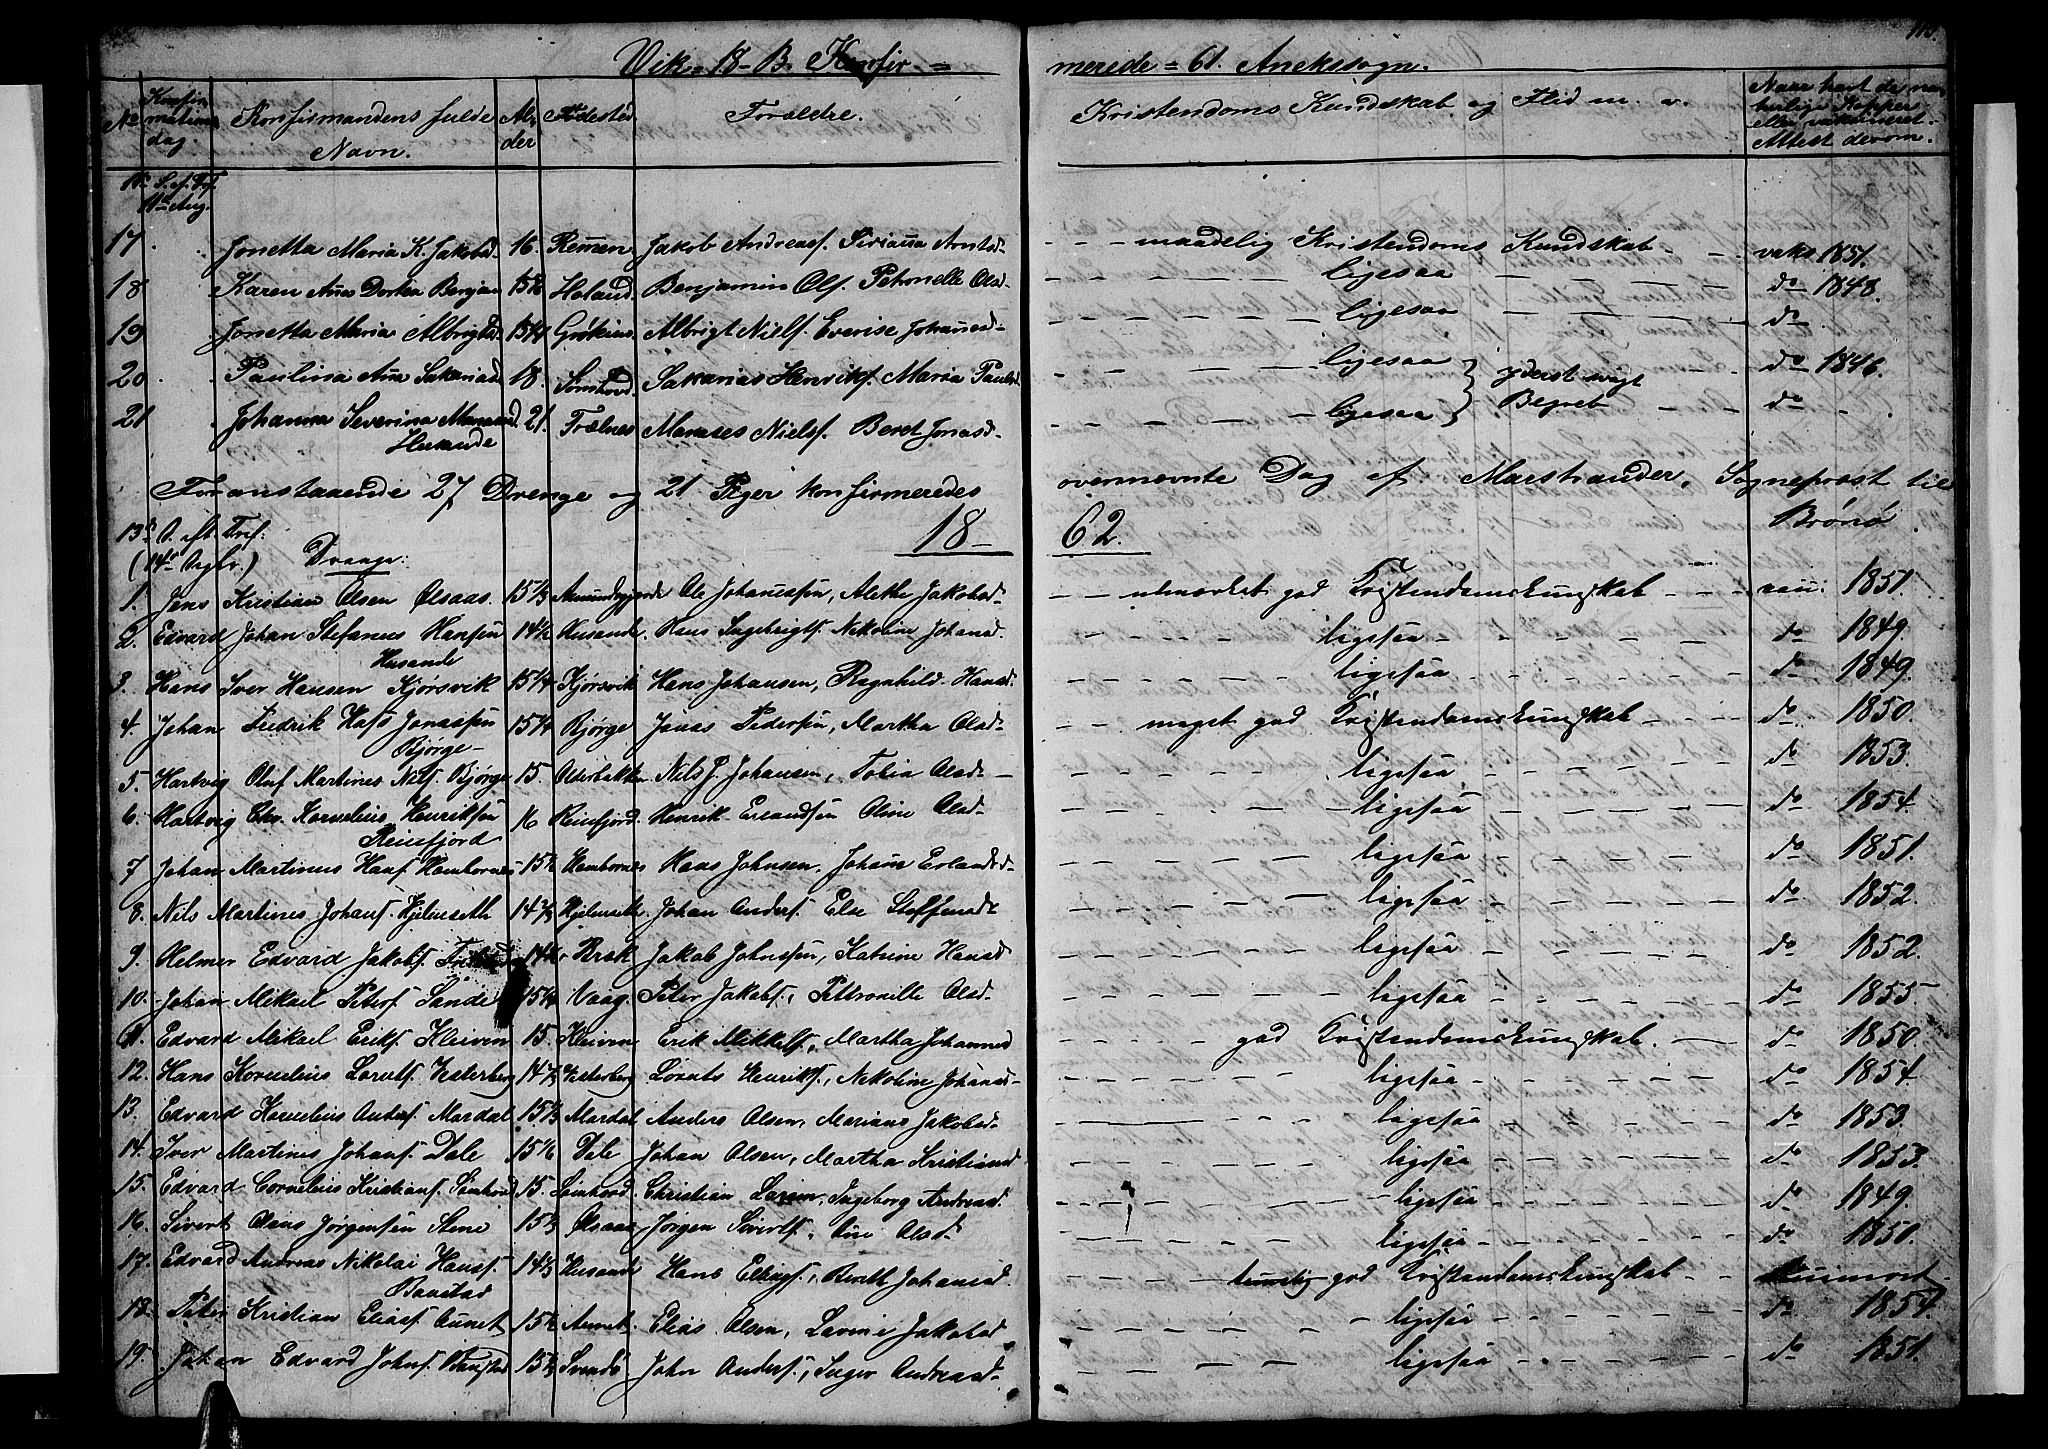 113.
Vik = 18 - B. Konfir = merede = 61. Anekssogn.
No Konfirmations dag. Konfirmandens fulde Navn. Alder Fødested Forældre. Kristendoms Kundskab og Flid m. v. Naar havt de naturlige Kopper eller vaksineret. Attest derom.
S. ef. Tref. 11te Aug.
17 Jonetta Maria K. Jakobsd. 16. Remmen Jakob Andreass. Arntsd. maadelig Kristendoms Kundskab vaks. 1851.
18 Karen Anne Dorthea Benjam 15½ Holand Benjamin Ols. Petronelle Olsd. ligesaa do 1848.
19 Jonetta Maria Albrigtsd. 15¼ Albrigt Niels. Johannesd. ligesaa do
20 Paulina Ane Sakariasd. 18. Sømhovd. Sakarias Henriks. Maria Paulsd. ligesaa do 1846.
21 Johanna Severina Manassesd. Husande 21. Trælnes Manases Niels. Beret Jonasd. ligesaa } yderst svagt Begreb do
Foranstaaende 27 Drenge og 21 Piger konfirmeredes overnævnte Dag af Marstrander, Sogneprest til Brønø.
18 62.
13de S. ef. Tref.
(14de Septbr.) Drenge:
1. Jens Kristian Olsen Ølsaas. 15⅓ Ole Johannessen, Alethe Jakobsd. udmærket god Kristendomskundskab vau: 1851.
2. Edvard Johan Stefanus Hansen Husande 14½ Husande. Hans Ingebrigts. Nikoline Johansd. ligesaa do 1849.
3. Hans Iver Hansen Kjørsvik 15¼ Kjørsvik Hans Johansen, Ragnhild Hansd. ligesaa do 1849.
4. Johan Fredrik Hass Jonassen Bjørge 15¼ Bjørge Jonas Pedersen, Martha Olsd. meget god Kristendomskundskab do 1850.
5. Hartvig Oluf Martines Nils. Bjørge 15. Olderbakken Nils J. Johansen, Tobia Olsd. ligesaa do 1853.
6. Hartvig Chr. Kornelius Henriksen Reinsfjord 16 Reinfjord. Henrik Erlandsen Oline Olsd. ligesaa do 1854.
7 Johan Martinus Hans. Hambornes 15½ Hambornes Hans Johnsen. Johane Erlandsd. ligesaa do 1851.
8. Nils Martines Johans. Hjelmseth 14⅔ Hjelmseth. Johan Anders. Else Steffensd. ligesaa do 1852.
9. Helmer Edvard Jakobs. 14½ Bræk Jakob Johnssen, Katrine Hansd. ligesaa do 1852.
10. Johan Mikael Peters. Sande 15¼ Vaag. Peter Jakobs., Pettronille Olsd. ligesaa do 1855
11. Edvard Mikael Eriks. Kleiven 15. Kleiven Erik Mikkels., Martha Johannesd. god Kristendomskundskab. do 1850.
12. Hans Kornelius Lornts. Vesterberg 14⅔ Vesterberg Lornts Henriks., Nikoline Johansd. ligesaa do 1854.
13. Edvard Kornelius Anders. Mardal 15⅔ Mardal Anders Olsen, Mariane Jakobsd. ligesaa do 1853.
14. Iver Martines Johans. Dale 15⅙ Dale Johan Olsen, Martha Kristiansd. ligesaa do 1853.
15. Edvard Cornelius Kristians. Sømhovd 15. Sømhovd. Christian Larsen, Ingeborg Andreasd. ligesaa do 1849.
16. Sivert Olaus Jørgensen Stene 15⅔ Ølsaas Jørgen Siverts. Ane Olsd. ligesaa do 1850.
17. Edvard Andreas Nikolai Hanss. Baustad 14⅔ Husande Hans Ellings., Berith Johansd. temelig god Kristendomskundskab
18. Peter Kristian Elias. Aunet 15½ Aunet. Elias Olsen, Lavine Jakobsd. ligesaa do 1854.
19. Johan Edvard Johns. 15⅔ John Anders., Inger Andreasd. ligesaa do 1851.